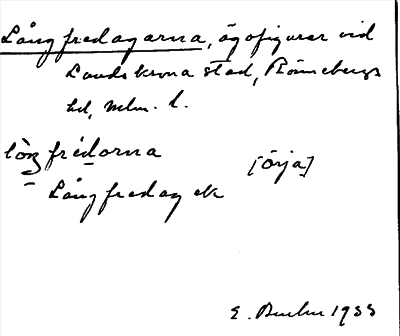 Långfredagarna, ägofigurer vid
Landskrona stad, Rönnebergs
hd, Mlm. l.
lòŋ frédorna
[Örja]
Långfredag etc
E. 1933